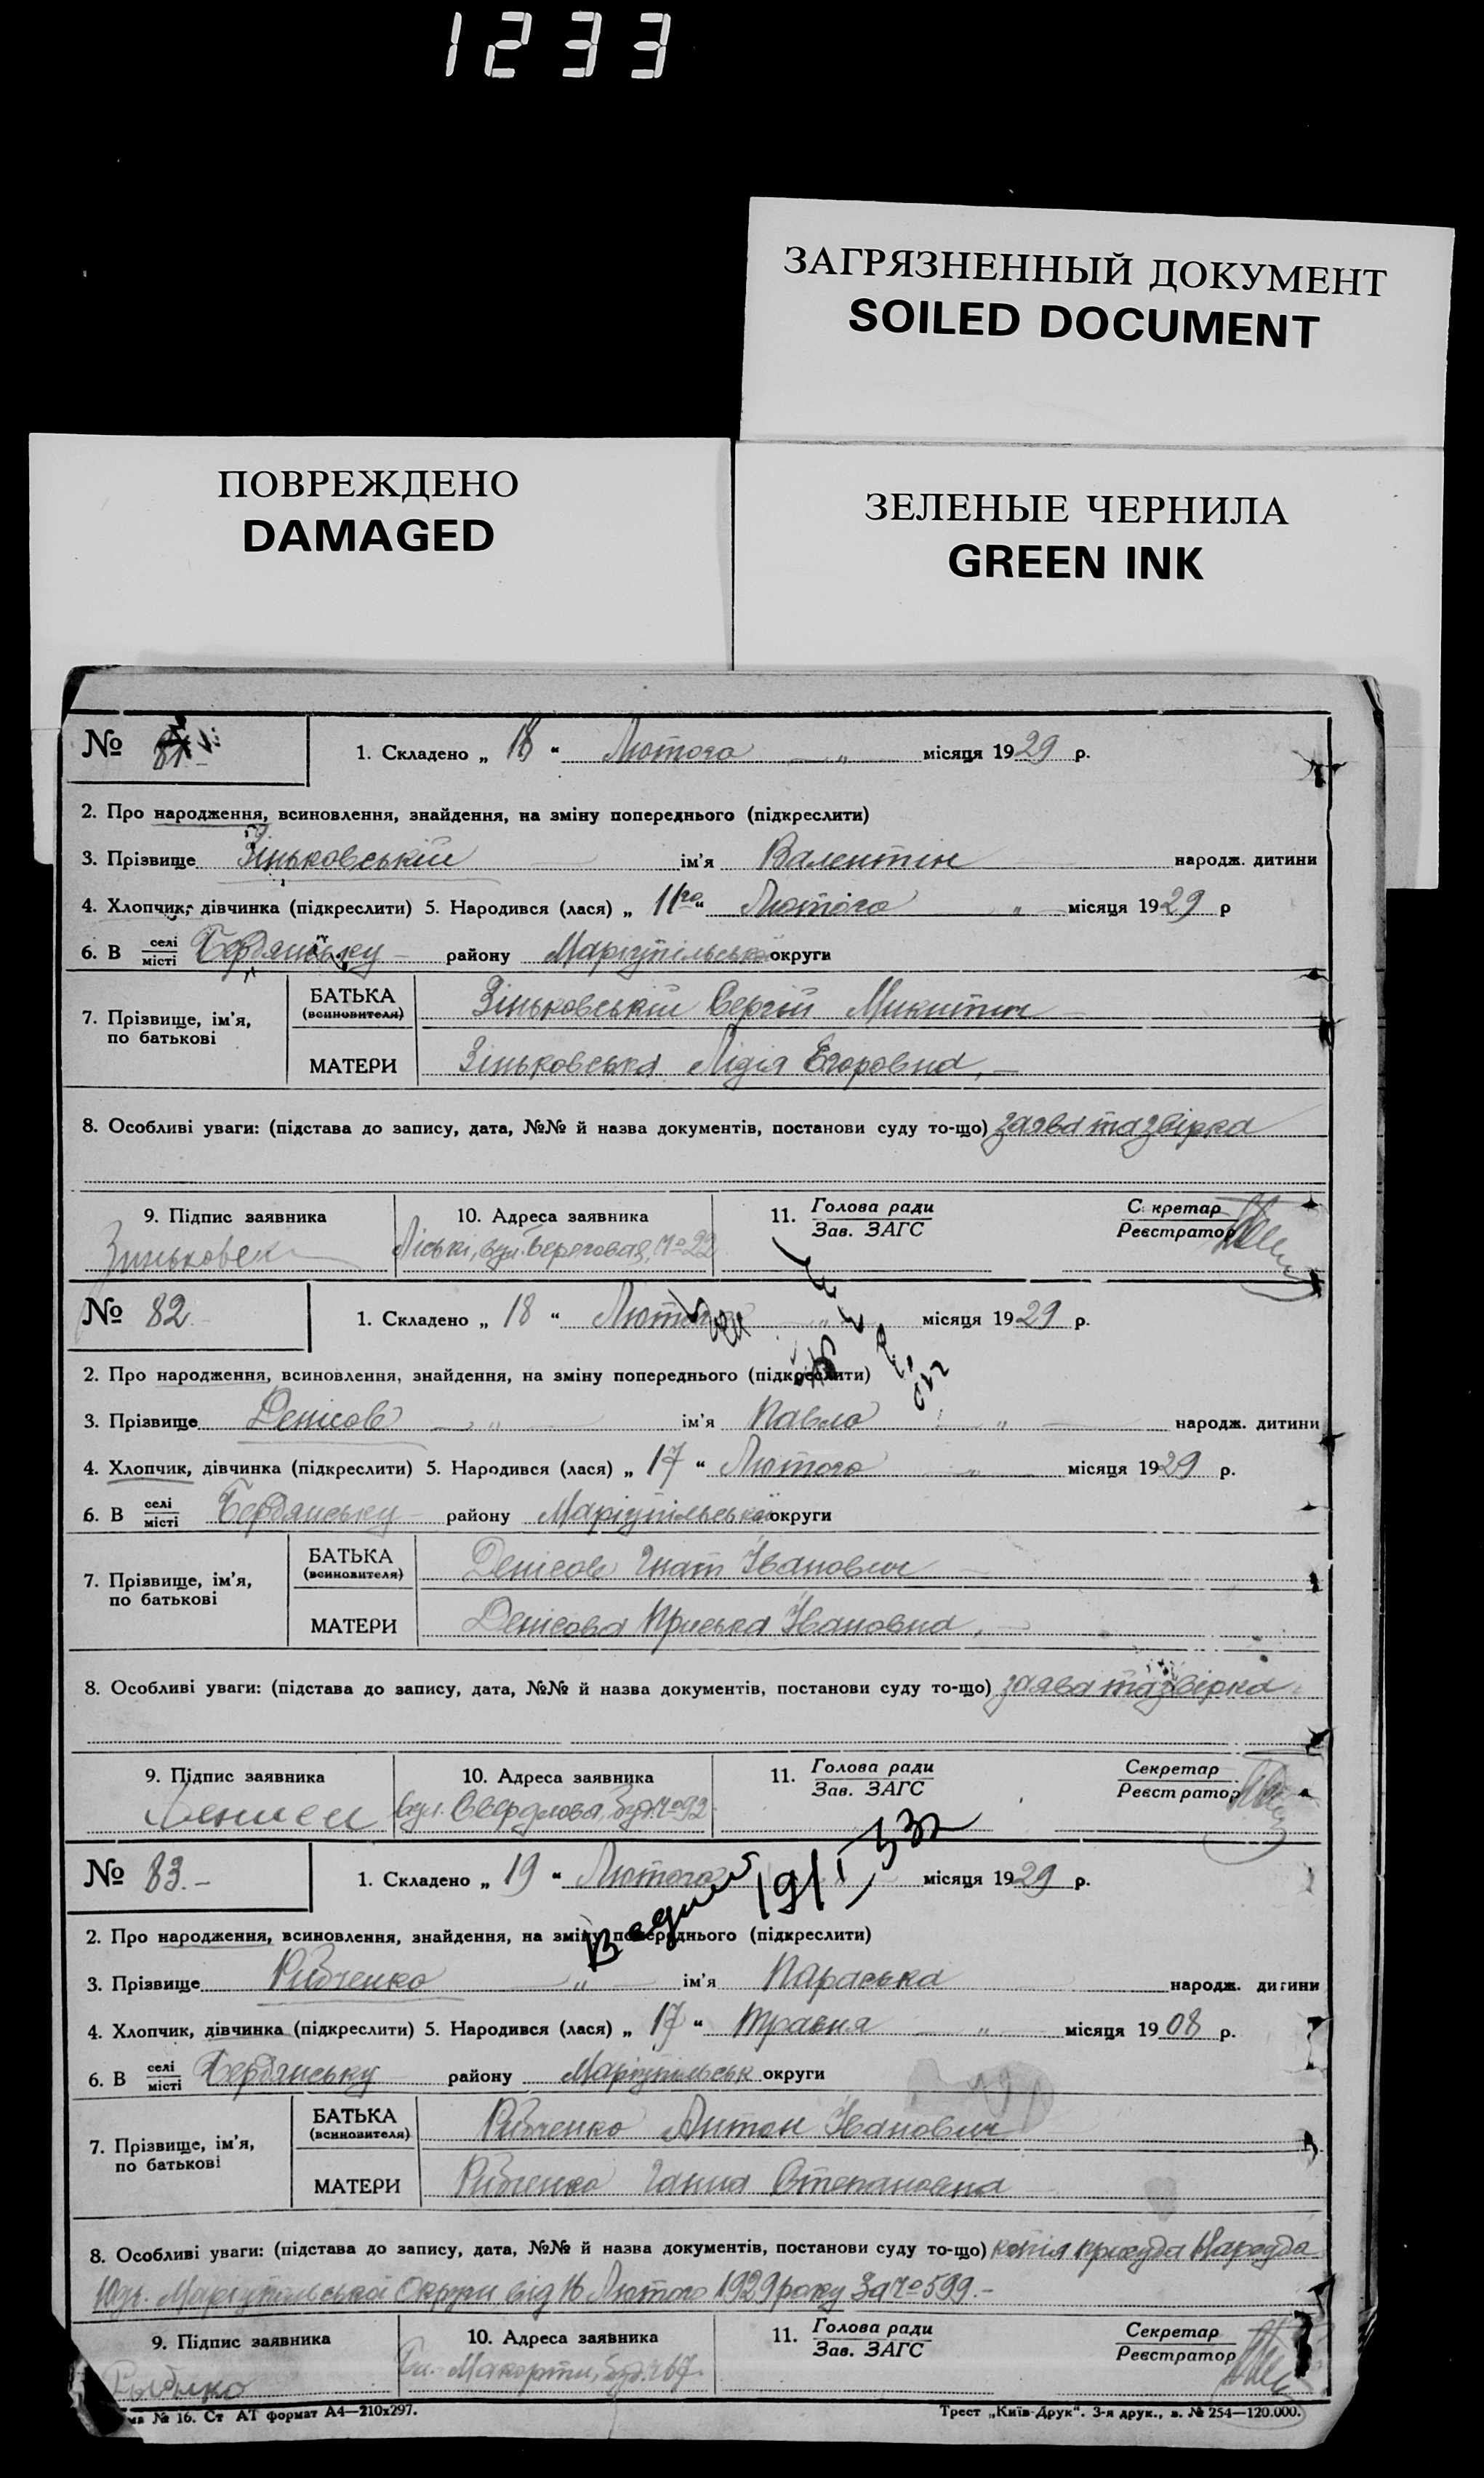 1233
ЗАГРЯЗНЕННЫЙ ДОКУМЕНТ
SOILED DOCUMENT
ПОВРЕЖДЕНО
DAMAGED
ЗЕЛЕНЫЕ ЧЕРНИЛА
GREEN INK
№ 81
1. Складено „ 18 “ Лютого „ місяця 1929 р.
2. Про народження, всиновлення, знайдення, на зміну попереднього (підкреслити)
3. Прізвище Зіньковській ім'я Валентін народж. дитини
4. Хлопчик, дівчинка (підкреслити) 5. Народився (лася) „ 11го “ Лютого „ місяця 1929 р
6. В селі місті Бердянську району Маріупільської округи
7. Прізвище, ім'я, по батькові
БАТЬКА (всиновителя) Зіньковській Сергій Микитич
МАТЕРИ Зіньковська Лідія Егоровна,
8. Особливі уваги: (підстава до запису, дата, №№ й назва документів, постанови суду то-що) заява та звірка
9. Підпис заявника 10. Адреса заявника 11. Голова ради Зав. ЗАГС С кретар Реєстратор
Зиньковск Ліські, вул. Береговая, № 22
№ 82
1. Складено „ 18 “ Лютого „ місяця 1929 р.
2. Про народження, всиновлення, знайдення, на зміну попереднього (підкреслити)
3. Прізвище Денісов „ ім'я Павло „ народж. дитини
4. Хлопчик, дівчинка (підкреслити) 5. Народився (лася) „ 17 “ Лютого „ місяця 1929 р.
6. В селі місті Бердянську району Маріупільської округи
7. Прізвище, ім'я, по батькові
БАТЬКА (всиновителя) Денісов Гнат Іванович
МАТЕРИ Денісова Приська Івановна,
8. Особливі уваги: (підстава до запису, дата, №№ й назва документів, постанови суду то-що) заява та звірка
9. Підпис заявника 10. Адреса заявника 11. Голова ради Зав. ЗАГС Секретар Реєстратор
вул. Свердлова, буд. № 92
№ 83.-
1. Складено „ 19 “ Лютого місяця 1929 р.
19/I 33
2. Про народження, всиновлення, знайдення, на зміну попереднього (підкреслити)
3. Прізвище Рибченко „ ім'я Параська народж. дитини
4. Хлопчик, дівчинка (підкреслити) 5. Народився (лася) „ 17 “ травня „ місяця 1908 р.
6. В селі місті Бердянську району Маріупільськ округи
7. Прізвище, ім'я, по батькові
БАТЬКА (всиновителя) Рибченко Антон Іванович
МАТЕРИ Рибченко Ганна Степановна
8. Особливі уваги: (підстава до запису, дата, №№ й назва документів, постанови суду то-що) копія присуда Нарсуда
Маріупільської Округи від 16 Лютого 1929 року за № 599.-
9. Підпис заявника 10. Адреса заявника 11. Голова ради Зав. ЗАГС Секретар Реєстратор
ма № 16. Ст АТ формат А4—210x297.
Трест „Київ-Друк“. 3-я друк., з. № 254—120.000.